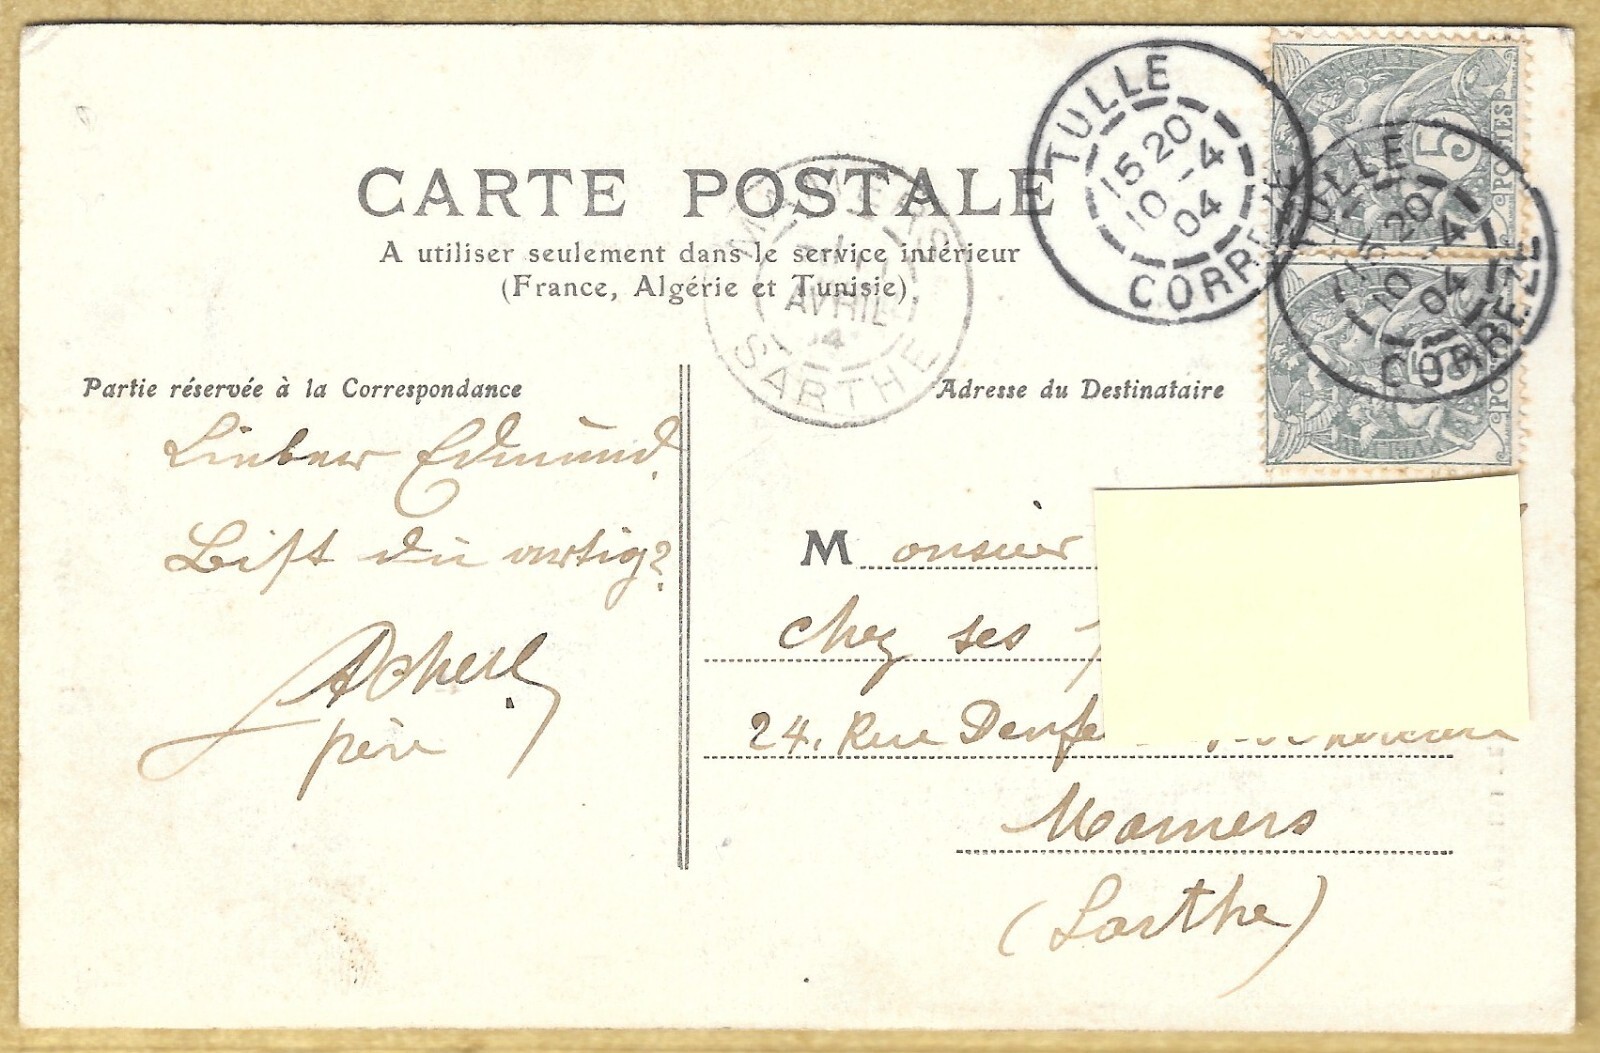 CARTE POSTALE
A utiliser seulement dans le service intérieur
(France, Algérie et Tunisie)
TULLE
15 20
10 -4
04
CORREZE
TULLE
15 20
10 -4
04
CORREZE
5
POSTES
MAMERS
AVRIL
SARTHE
Partie réservée à la Correspondance
Lieber Edmund.
Bist du artig?
père
Adresse du Destinataire
Monsieur
chez ses
24, Rue Denfe
Mamers
(Sarthe)